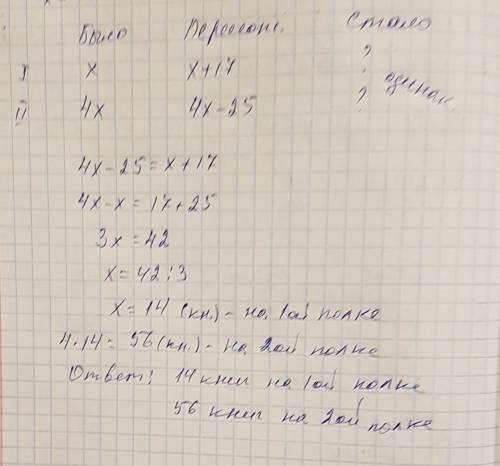 Было Переслож. Стало
I x x+17 ?
II 4x 4x-25 ? одинак.
4x-25=x+17
4x-x=17+25
3x=42
x=42:3
x=14 (кн.)- на 1ой полке
4.14= 56 (кн.)- на 2ой полке
Ответ: 14 книг на 1ой полке
56 книг на 2ой полке